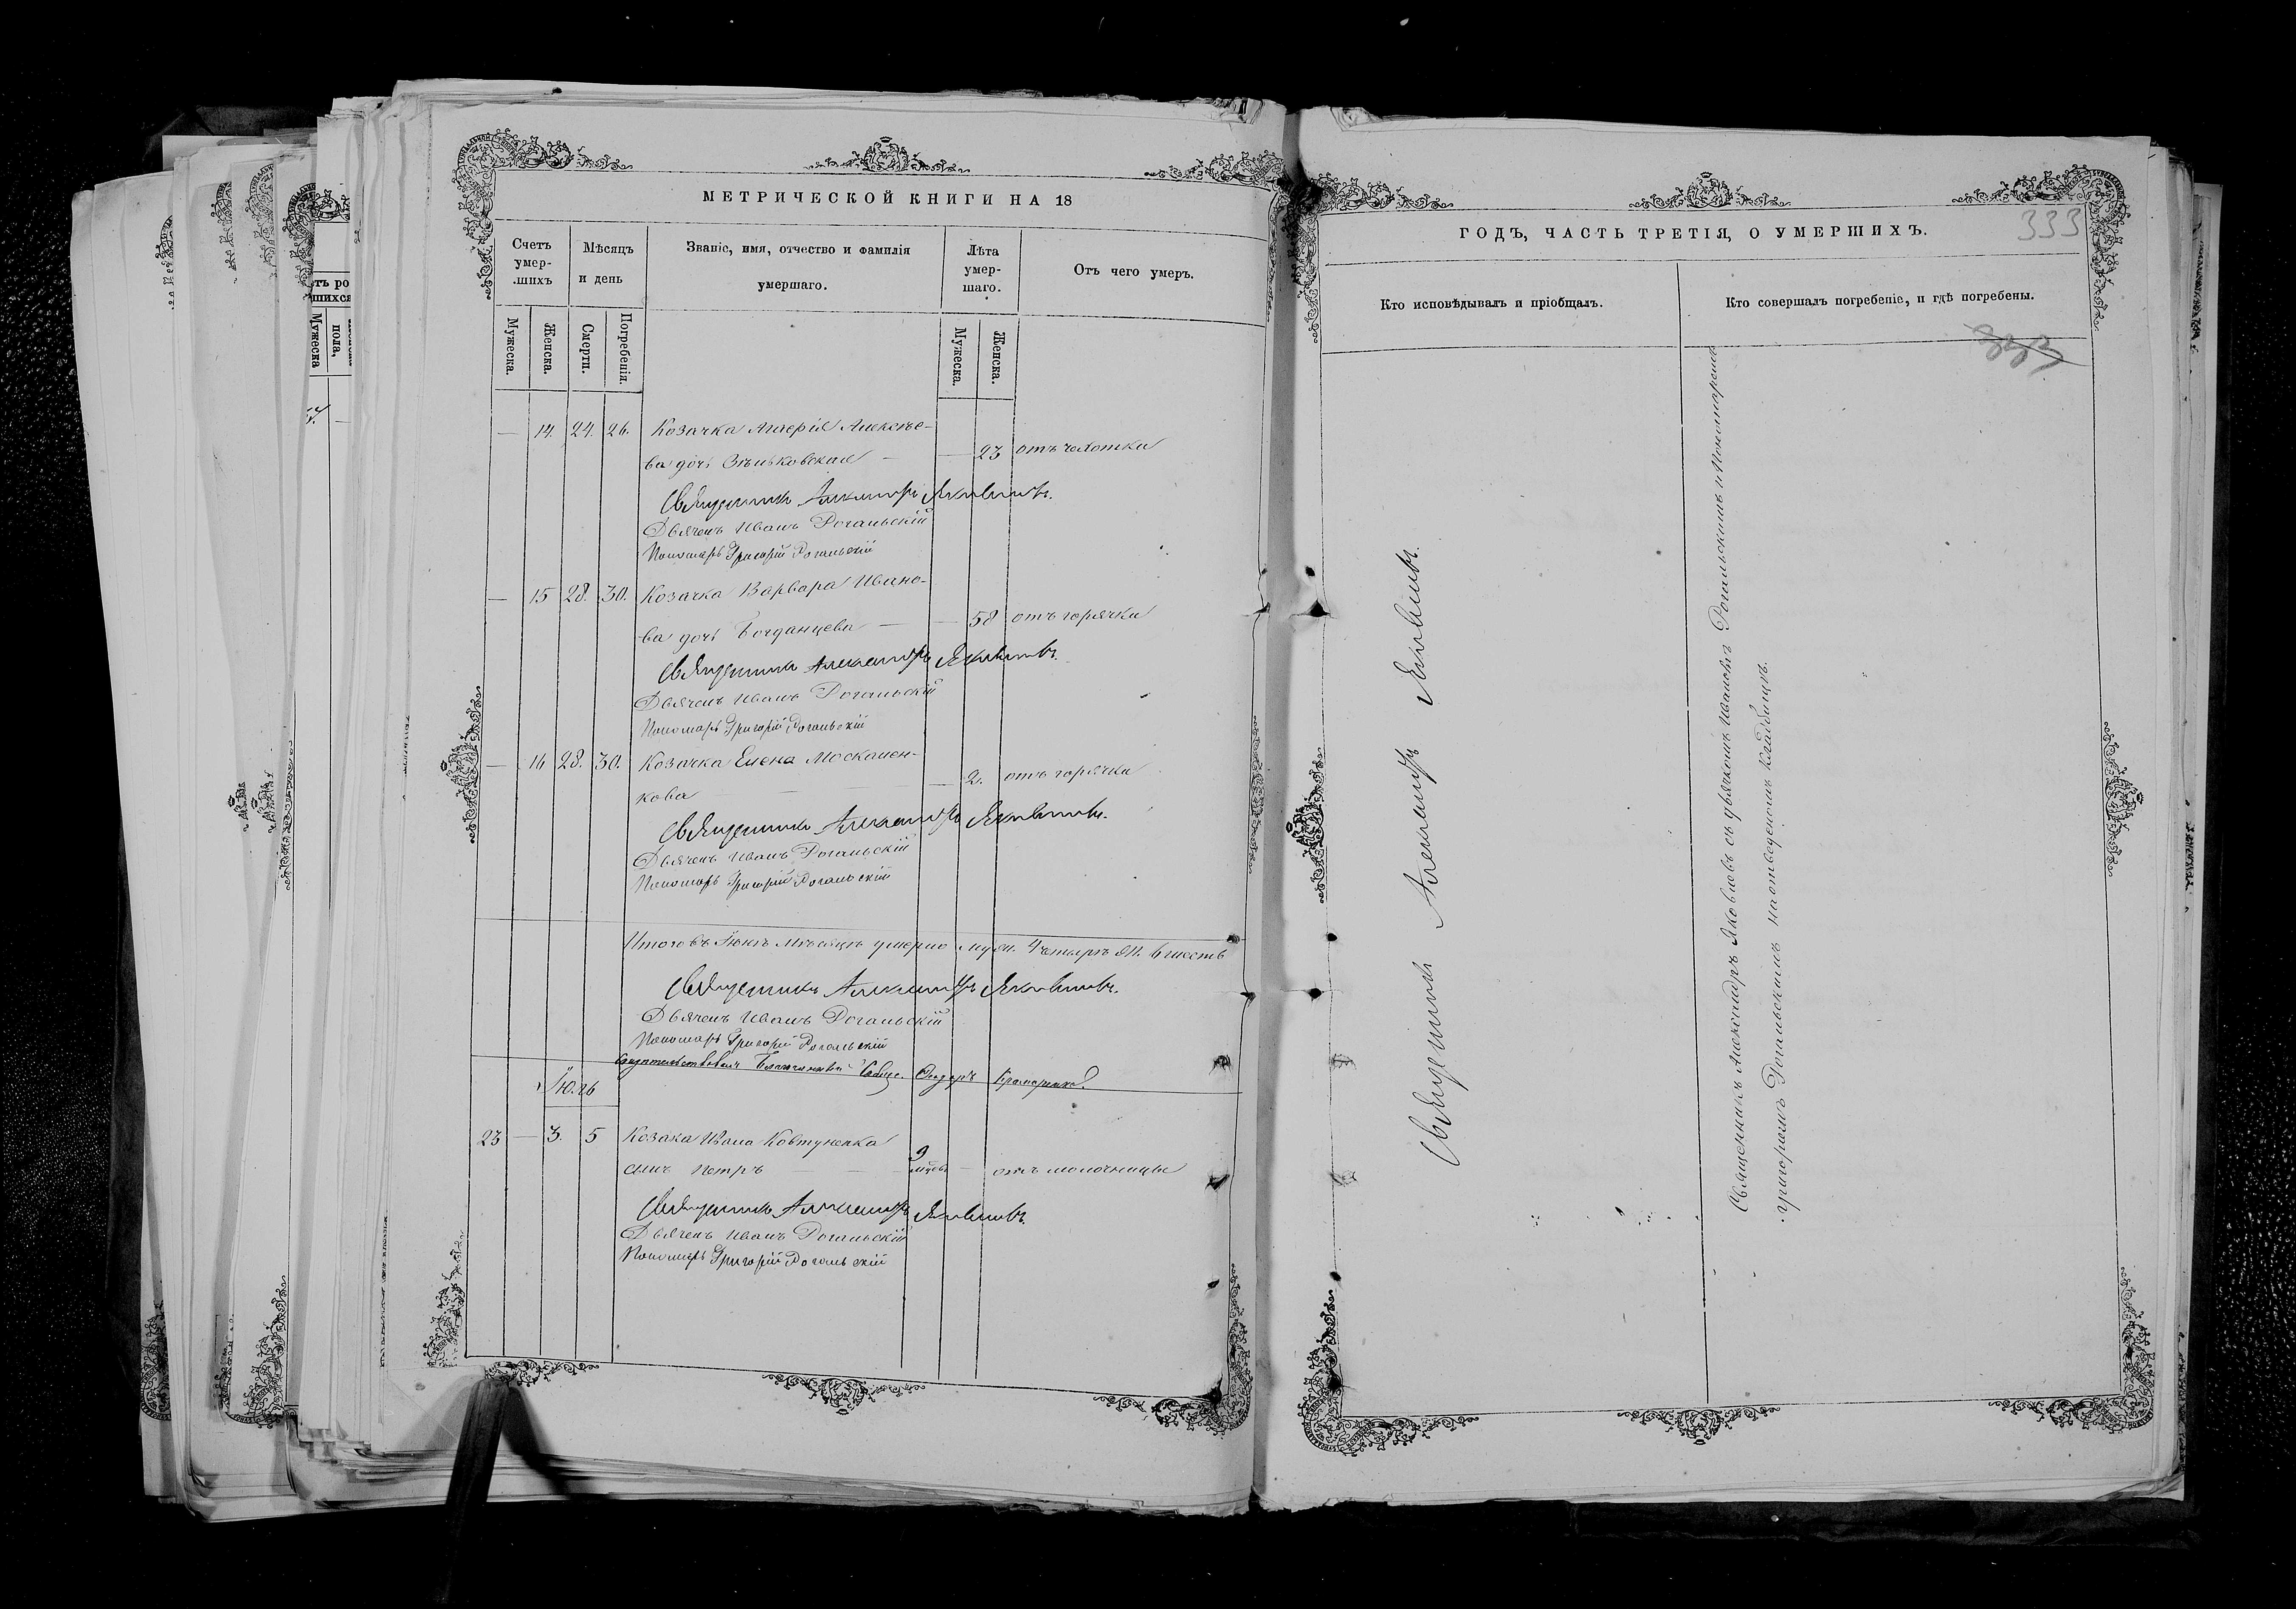 МЕТРИЧЕСКОЙ КНИГИ НА 18
Счетъ умер-шихъ
Мѣсяцъ и день
Званіе, имя, отчество и фамилія умершаго.
Лѣта умер-шаго.
Отъ чего умеръ.
Мужеска.
Женска.
Смерти.
Погребенія.
Мужеска.
Женска.
— 14. 24. 26. Козачка Алексѣе-
ва дочь Зѣньковская — — 23 отъ чахотки
Священникъ Александръ Яковлевъ.
Дьячекъ Иванъ Рогальскій
Пономарь Григорій Рогальскій
— 15 28. 30. Козачка Варвара Ивано-
ва дочь Богданцева — — 58 отъ горячки
Священникъ Александръ Яковлевъ.
Дьячекъ Иванъ Рогальскій
Пономарь Григорій Рогальскій
— 16 28. 30. Козачка Елена Москален-
кова — — — 2. отъ горячки
Священникъ Александръ Яковлевъ.
Дьячекъ Иванъ Рогальскій
Пономарь Григорій Рогальскій
Итого въ Іюнѣ мѣсяцѣ умерло муж. 4 четыре ж. 6 шесть
Священникъ Александръ Яковлевъ.
Дьячекъ Иванъ Рогальскій
Пономарь Григорій Рогальскій
Благочинный
Іюль
23 — 3. 5 Козака Ивана Ковтуненка
сынъ Петръ — — 9 мѣсяц. — отъ молочницы
Священникъ Александръ Яковлевъ.
Дьячекъ Иванъ Рогальскій
Пономарь Григорій Рогальскій
ГОДЪ, ЧАСТЬ ТРЕТІЯ, О УМЕРШИХЪ.
333
Кто исповѣдывалъ и пріобщалъ.
Кто совершалъ погребеніе, и гдѣ погребены.
333
Священникъ Александръ Яковлевъ.
Священникъ Александръ Яковлевъ съ дьячкомъ Иваномъ Рогальскимъ и Пономаремъ
Григоріемъ Рогальскимъ на отведенномъ кладбищѣ.